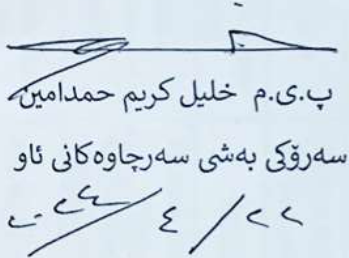 پ.ی.م خلیل کریم حمدامین
سەرۆکی بەشی سەرچاوەکانی ئاو
٢٢ / ٤ / ٢٠٢٤